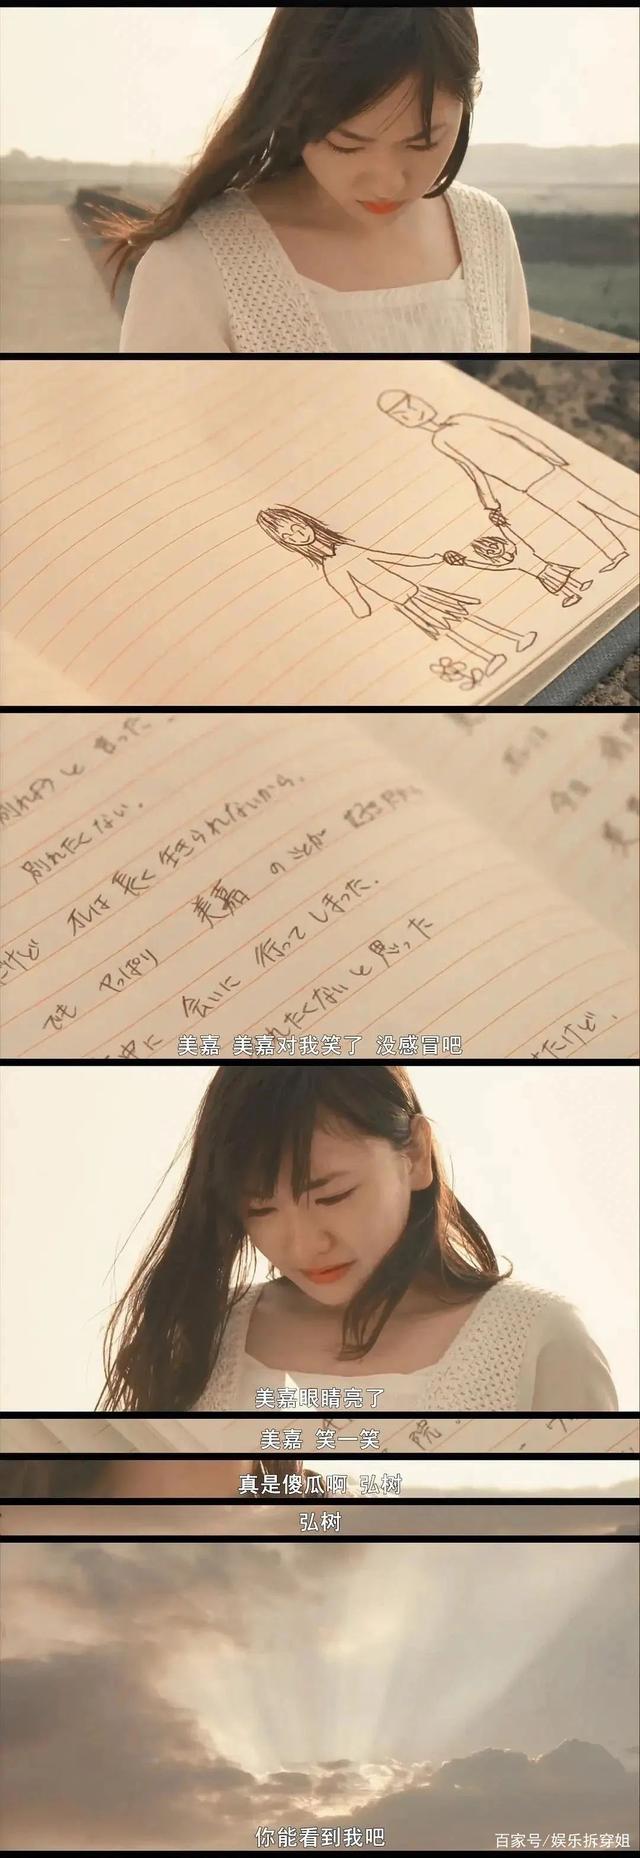 別れようと言った.
別れたくない.
だけど オレは 長く 生きられないから.
でも やっぱり 美嘉 のことが
中に 会いに 行ってしまった.
れたくないと思った
けど.
美嘉 美嘉对我笑了 没感冒吧
美嘉眼睛亮了
院.
美嘉 笑一笑
真是傻瓜啊 弘树
弘树
你能看到我吧
百家号/娱乐拆穿姐